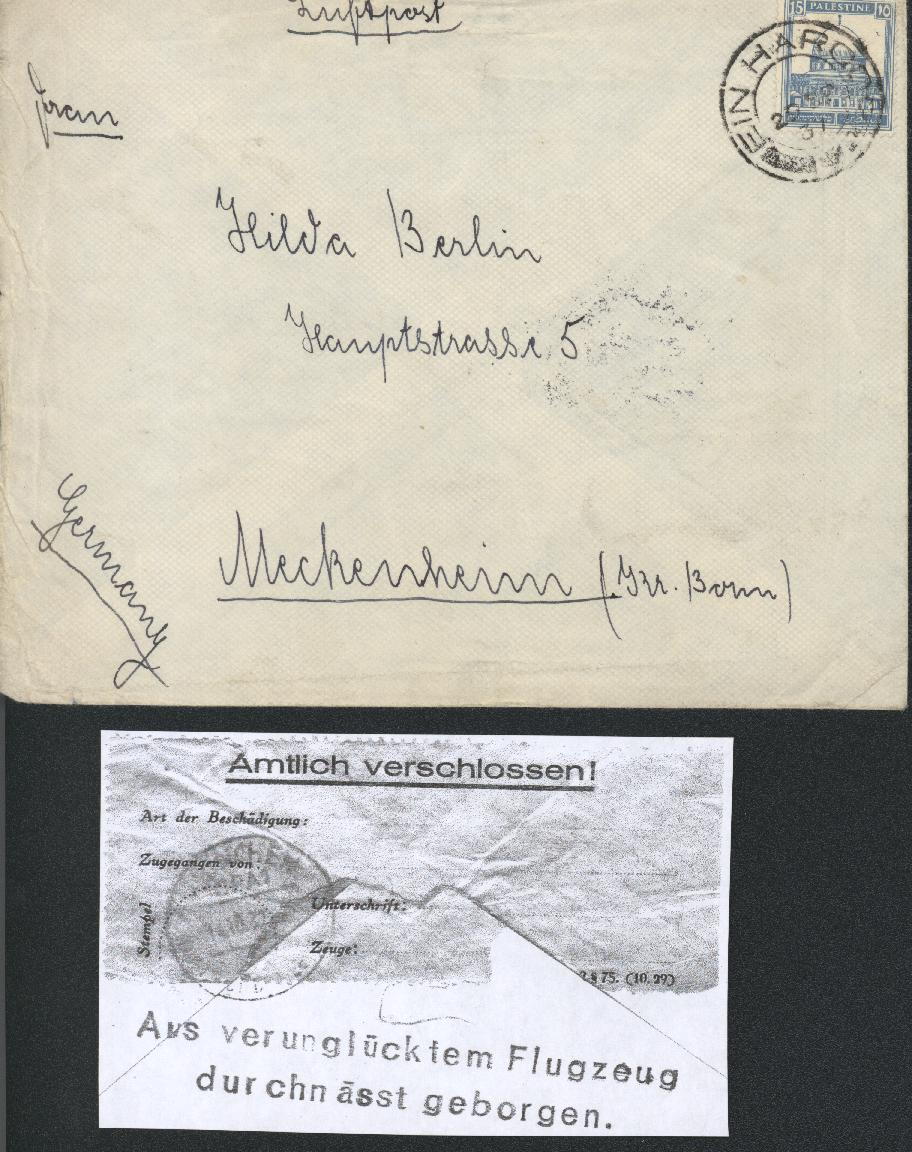 Luftpost
15 PALESTINE 10
EIN HAROD
37
Frau
Hilda Berlin
Hauptstrasse 5
Germany
Meckenheim (Kr. Bonn)
Amtlich verschlossen!
Art der Beschädigung:
Zugegangen von:
Unterschrift:
Stempel
Zeuge:
§ 75. (10. 29)
Aus verunglücktem Flugzeug
durchnässt geborgen.